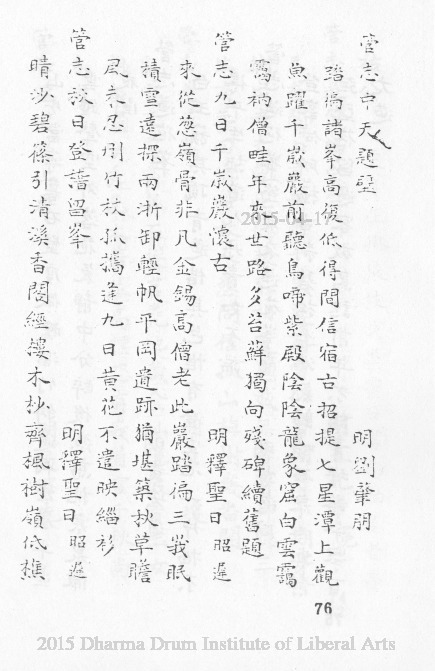 管志中天題壁
明劉肇朋
踏徧諸峯高復低得間信宿古招提七星潭上觀
魚躍千嵗巖前聽鳥啼紫殿陰陰龍象窟白雲靄
靄衲僧畦年來世路多苔蘚獨向殘碑續舊題
管志九日千嵗巖懷古
明釋聖日昭遑
來從葱嶺骨非凡金錫高僧老此巖踏徧三峩眠
積雪遠探兩浙卸輕帆平岡遺跡猶堪築秋草瞻
風未忍刪竹杖孤攜逢九日黄花不遣映緇衫
管志秋日登諸留峯
明釋聖日昭遑
晴沙碧篠引清溪香閣經摟木杪齊楓樹嶺低樵
76
2015-04-17
2015 Dharma Drum Institute of Liberal Arts